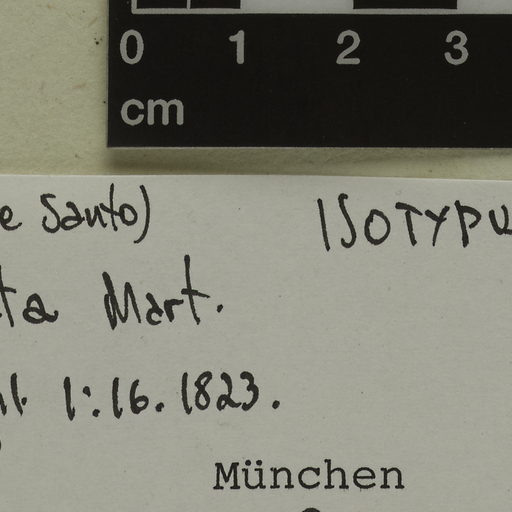 0 1 2 3
cm
e Santo) ISOTYPU
ta Mart.
1:16.1823.
München